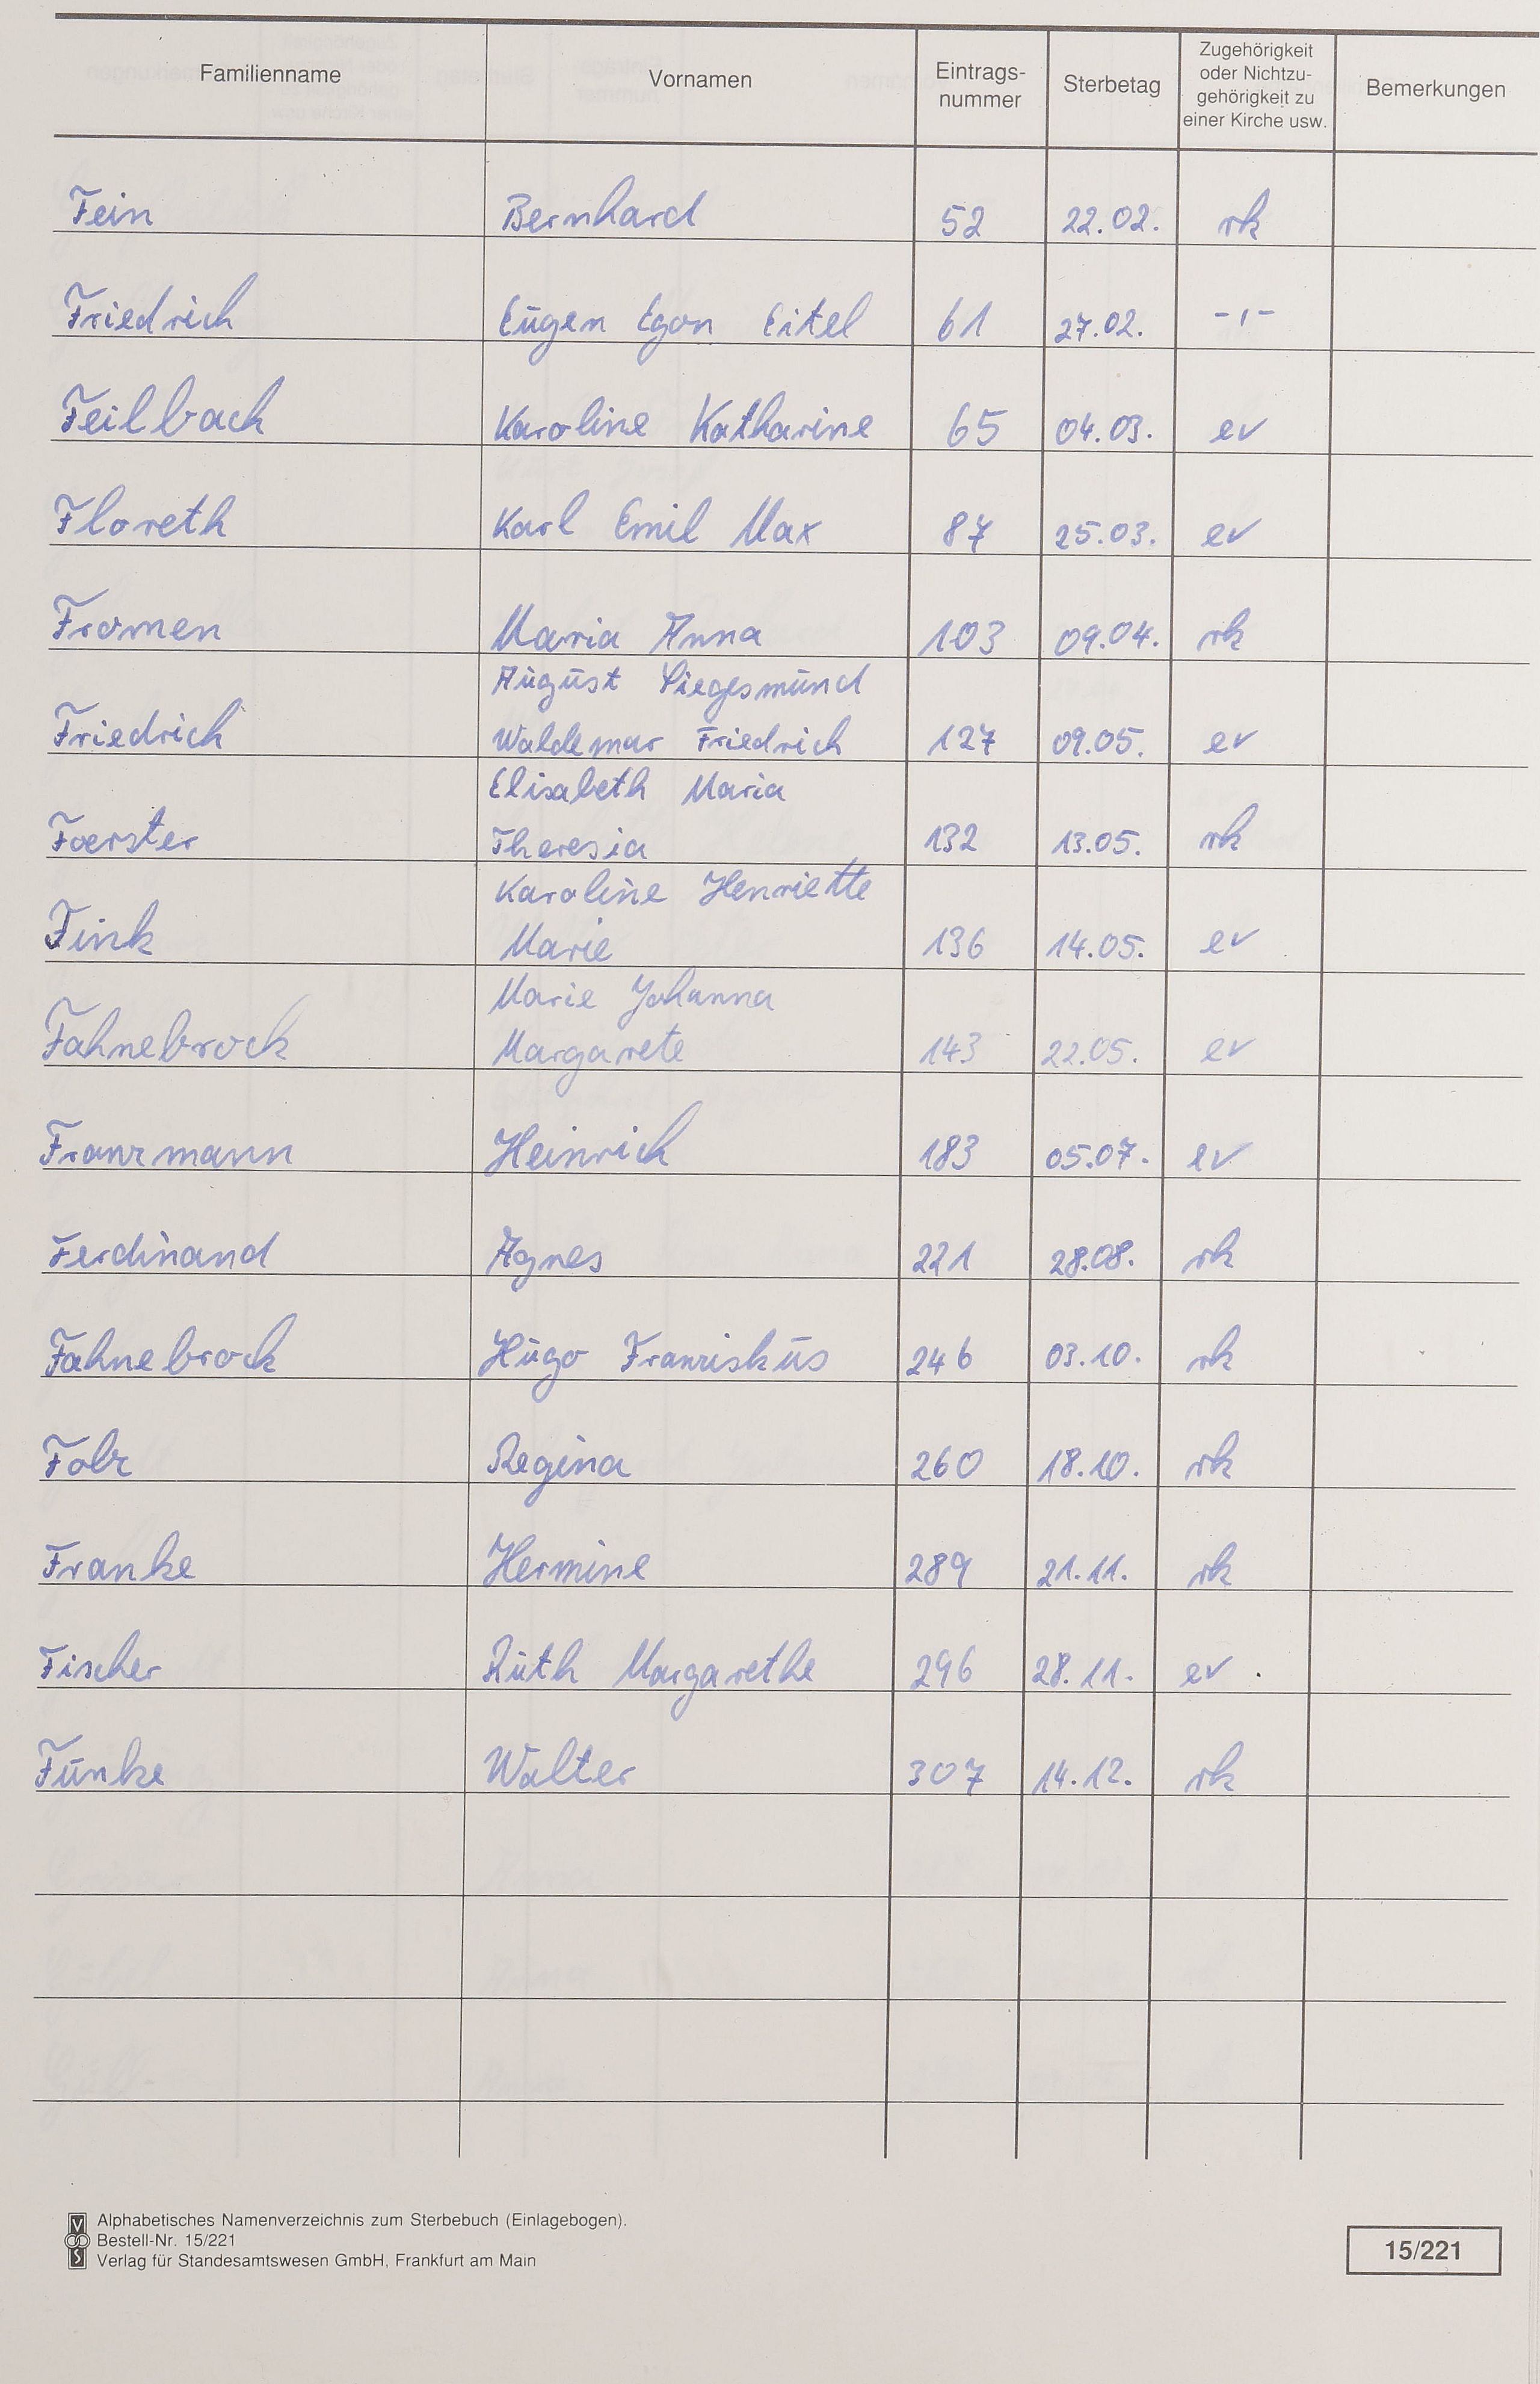 Familienname Vornamen Eintrags-nummer Sterbetag Zugehörigkeit oder Nichtzu-gehörigkeit zu einer Kirche usw. Bemerkungen
Fein Bernhard 52 22.02. rk
Friedrich Eugen Egon Eitel 61 27.02. -,-
Feilbach Karoline Katharine 65 04.03. ev
Floreth Karl Emil Max 87 25.03. ev
Fromen Maria Anna 103 09.04. rk
August Siegesmund
Friedrich Waldemar Friedrich 127 09.05. ev
Elisabeth Maria
Foerster Theresia 132 13.05. rk
Karoline Henriette
Fink Marie 136 14.05. ev
Marie Johanna
Fahnebrock Margarete 143 22.05. ev
Franzmann Heinrich 183 05.07. ev
Ferdinand Agnes 221 28.08. rk
Fahnebrock Hugo Franziskus 246 03.10. rk
Folz Regina 260 18.10. rk
Franke Hermine 289 21.11. rk
Fischer Ruth Margarethe 296 28.11. ev
Funke Walter 307 14.12. rk
Alphabetisches Namenverzeichnis zum Sterbebuch (Einlagebogen).
Bestell-Nr. 15/221
Verlag für Standesamtswesen GmbH, Frankfurt am Main
15/221